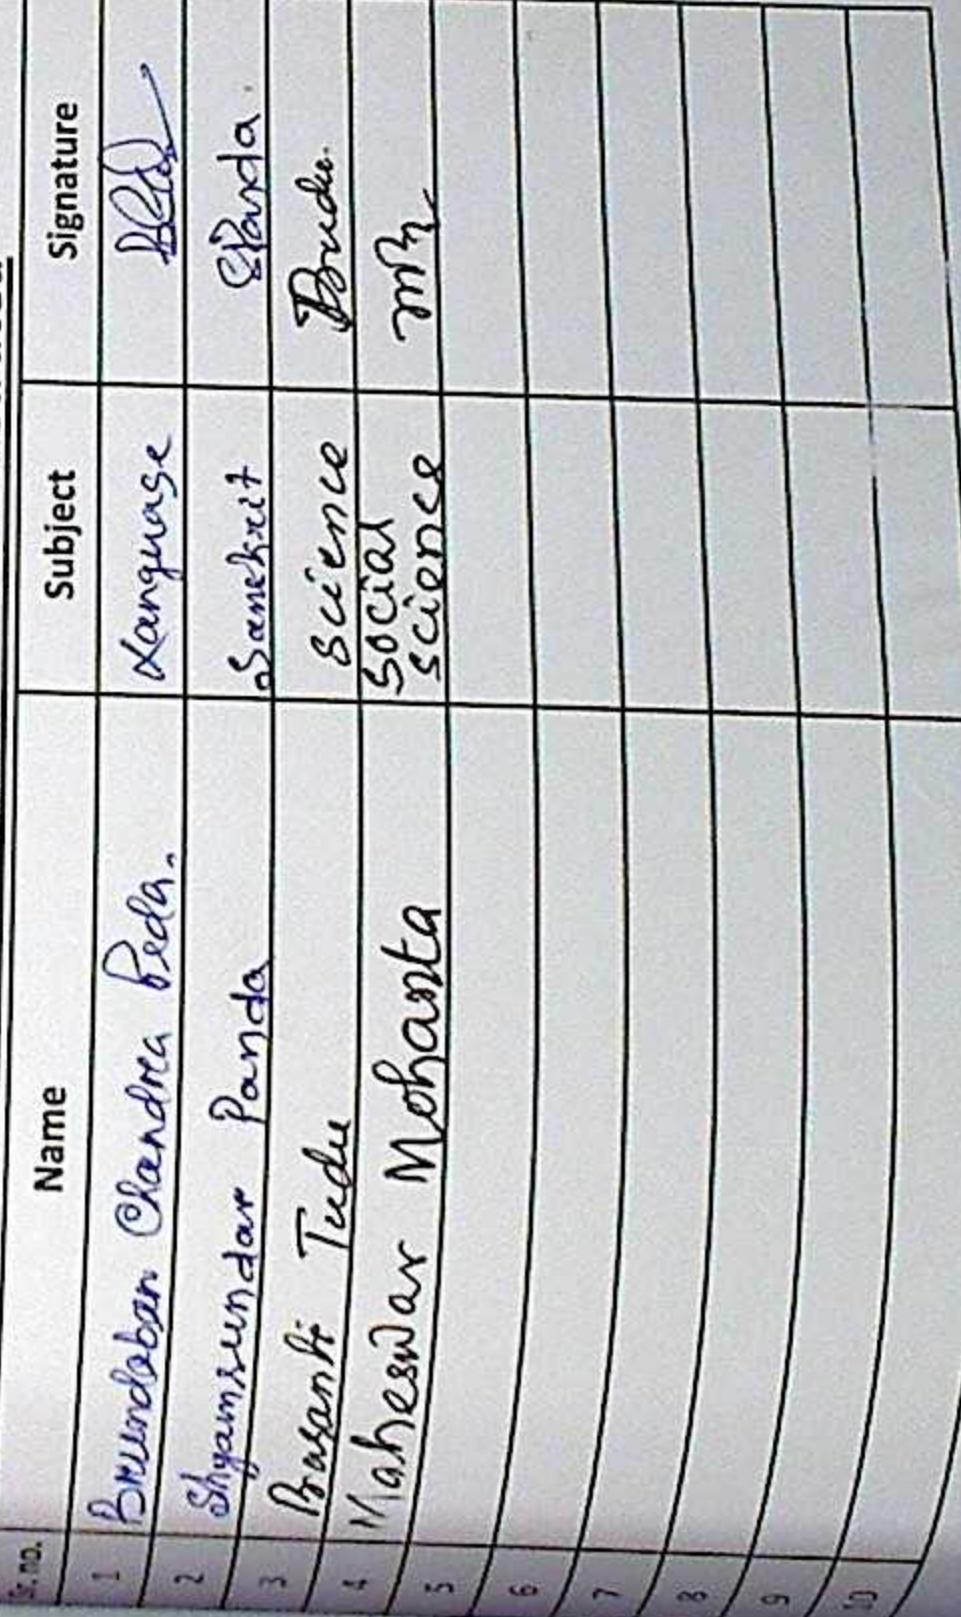 Sr. no. Name Subject Signature
1 Brundaban Chandra Beda. Language
2 Shyamsundar Panda Sanskrit SPanda.
3 Basanti Tudu Science
4 Maheswar Mohanta Social Science
5
6
7
8
9
10